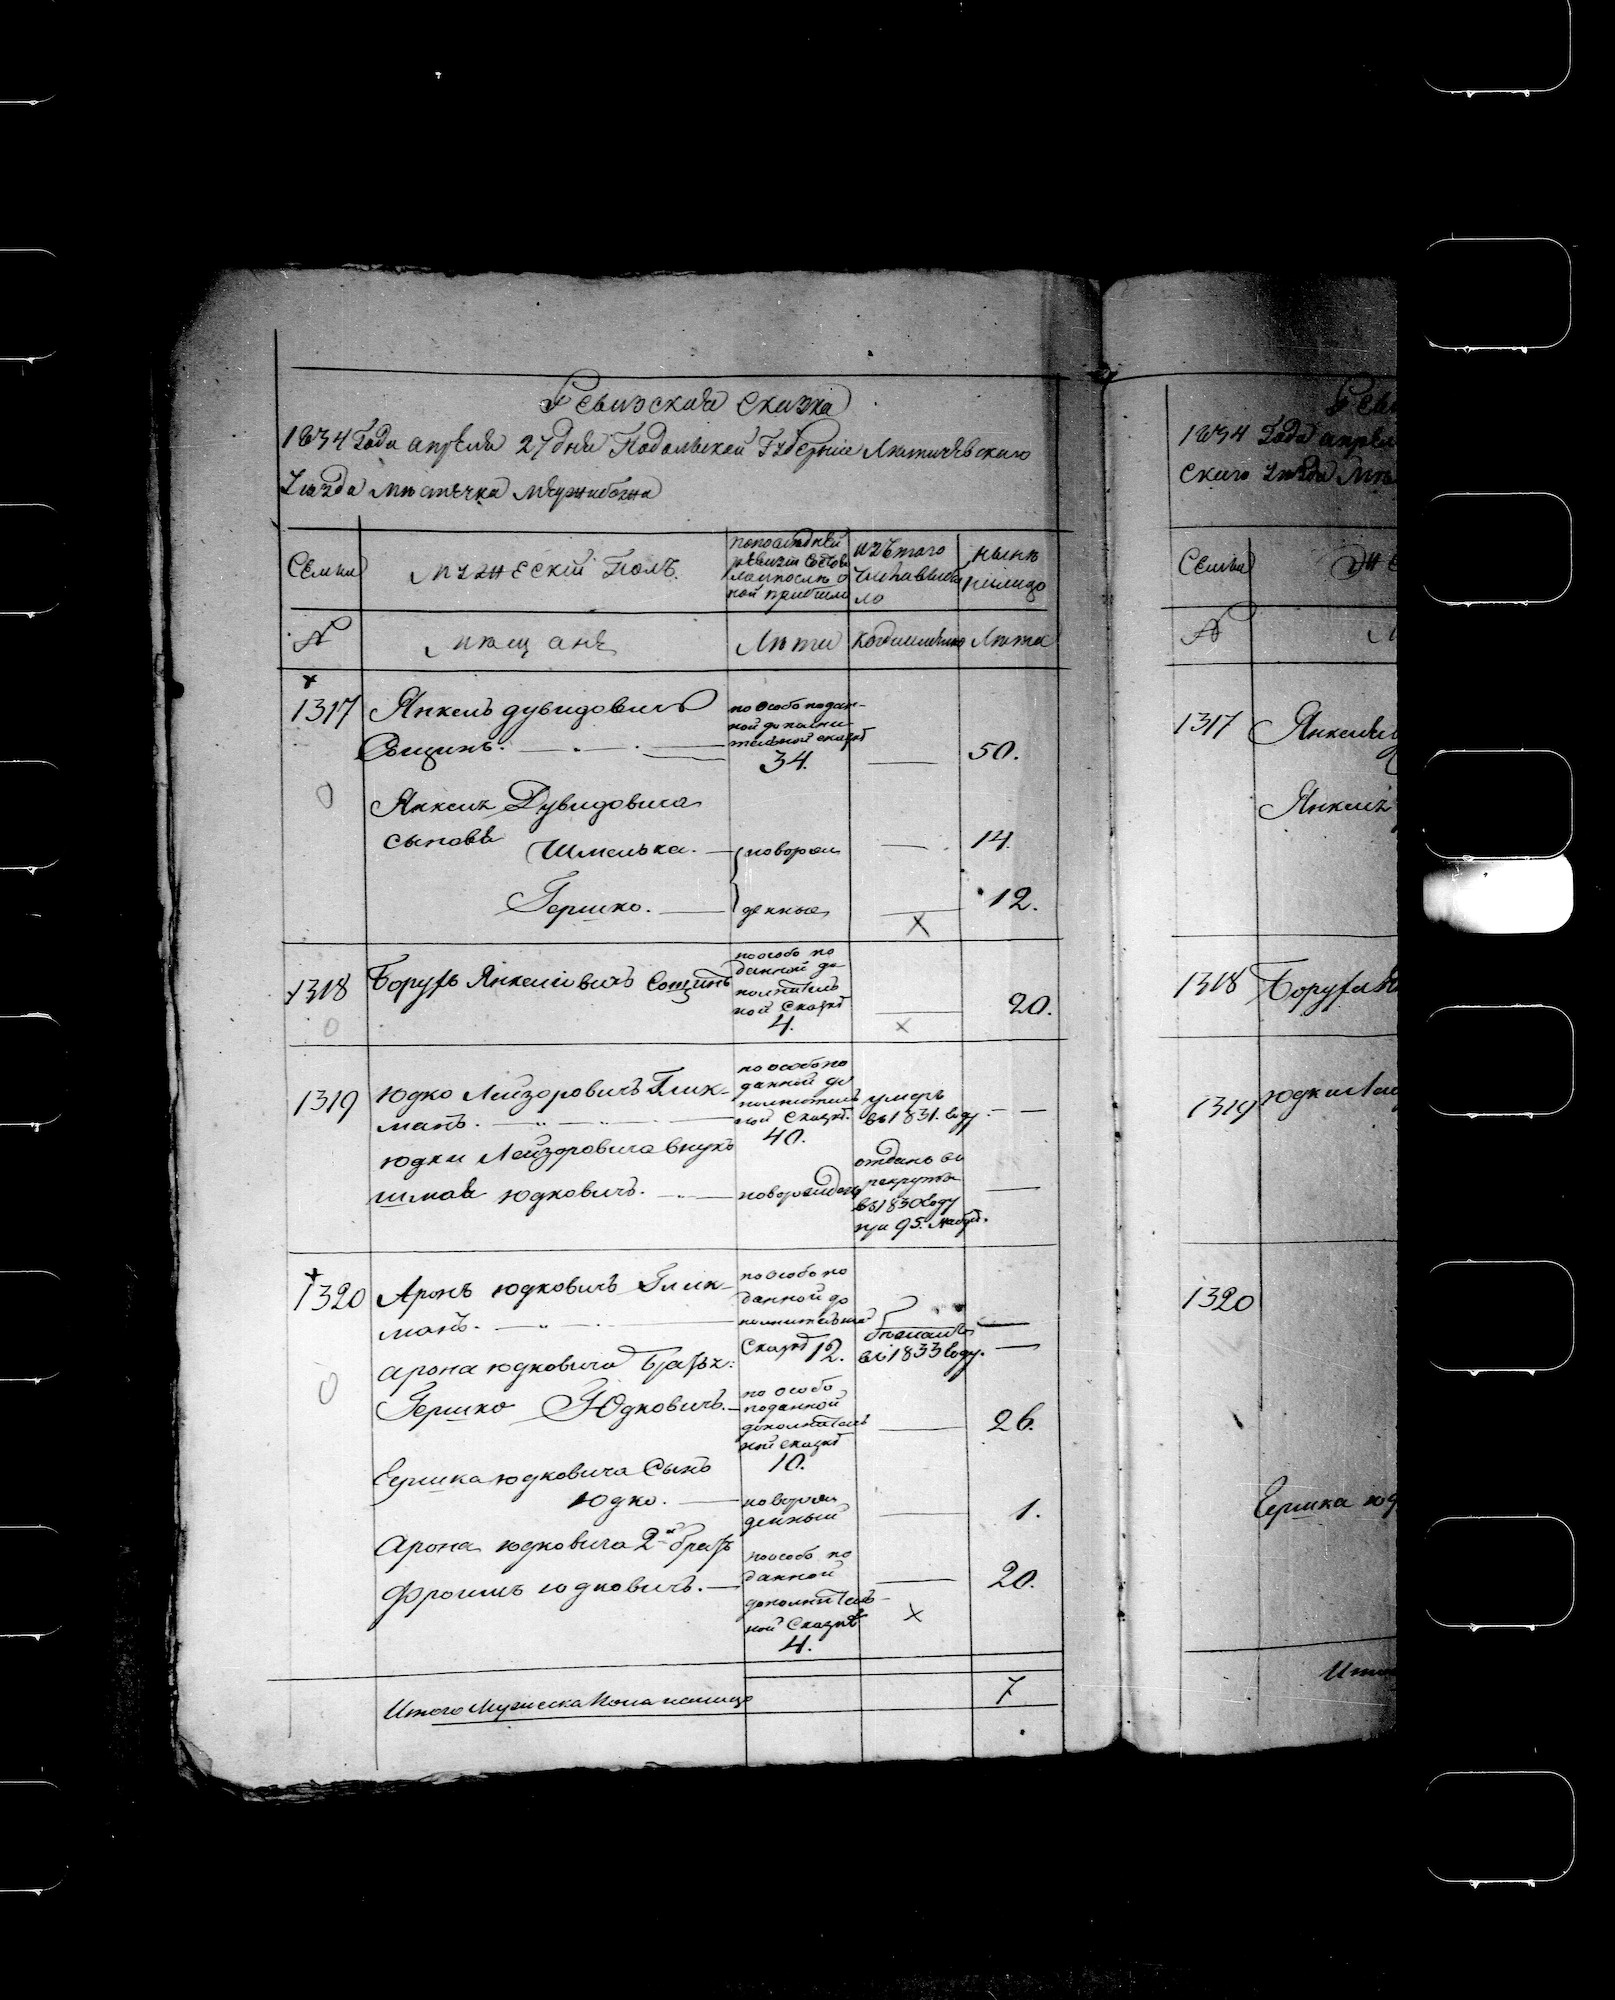 Ревизская Сказка
1834 Года апреля 27 дня Подольской Губернiи Литичевского
Уезда местечка Меджибожа
Семьи
мужескiй Полъ.
по последней ревизiи состояло и после оной прибыло
изъ того числа выбыло
ныне налицо
№
мещане
Лета
когда именно
Лета
1317
Янкель дувидовичъ
по особо подан-
ной дополни-
тельной сказке
34.
50.
Янкеля Дувидовича
сыновья
Шмелька.
новорож
14.
Гершко.
денные
12.
1318
Борухъ Янкелiовичъ
по особо по
данной до
полнитель
ной Сказке
4.
20.
1319
Юдко Лейзоровичъ Глик-
манъ.
по особо по
данной до
полнитель
ной Сказке.
40.
умеръ
въ 1831. году.
Юдки Лейзоровича внукъ
юдковичъ.
новорожденъ
отданъ въ
рекруты
въ 1830 году
при 95. наборе.
1320
Аронъ юдковичъ Глик-
манъ.
по особо по
данной до
полнительной
Сказке 12.
въ 1833 году.
арона юдковича братья:
Гершко Юдковичъ.
по особо
поданной
дополнитель
ной сказке
10.
26.
Гершка юдковича Сынъ
Юдко.
новорож
денный
1.
Арона юдковича 2й братъ
Фроимъ юдковичъ.
по особо по
данной
дополнитель-
ной Сказке
4.
20.
Итого Мужеска Пола налицо
7
1834 Года апрел
ского уезда Ме
Семьи
№
1317
Янкеля
Янкеля
1318
Боруха
1319
Юдки Лей
1320
Гершка юд
Ито